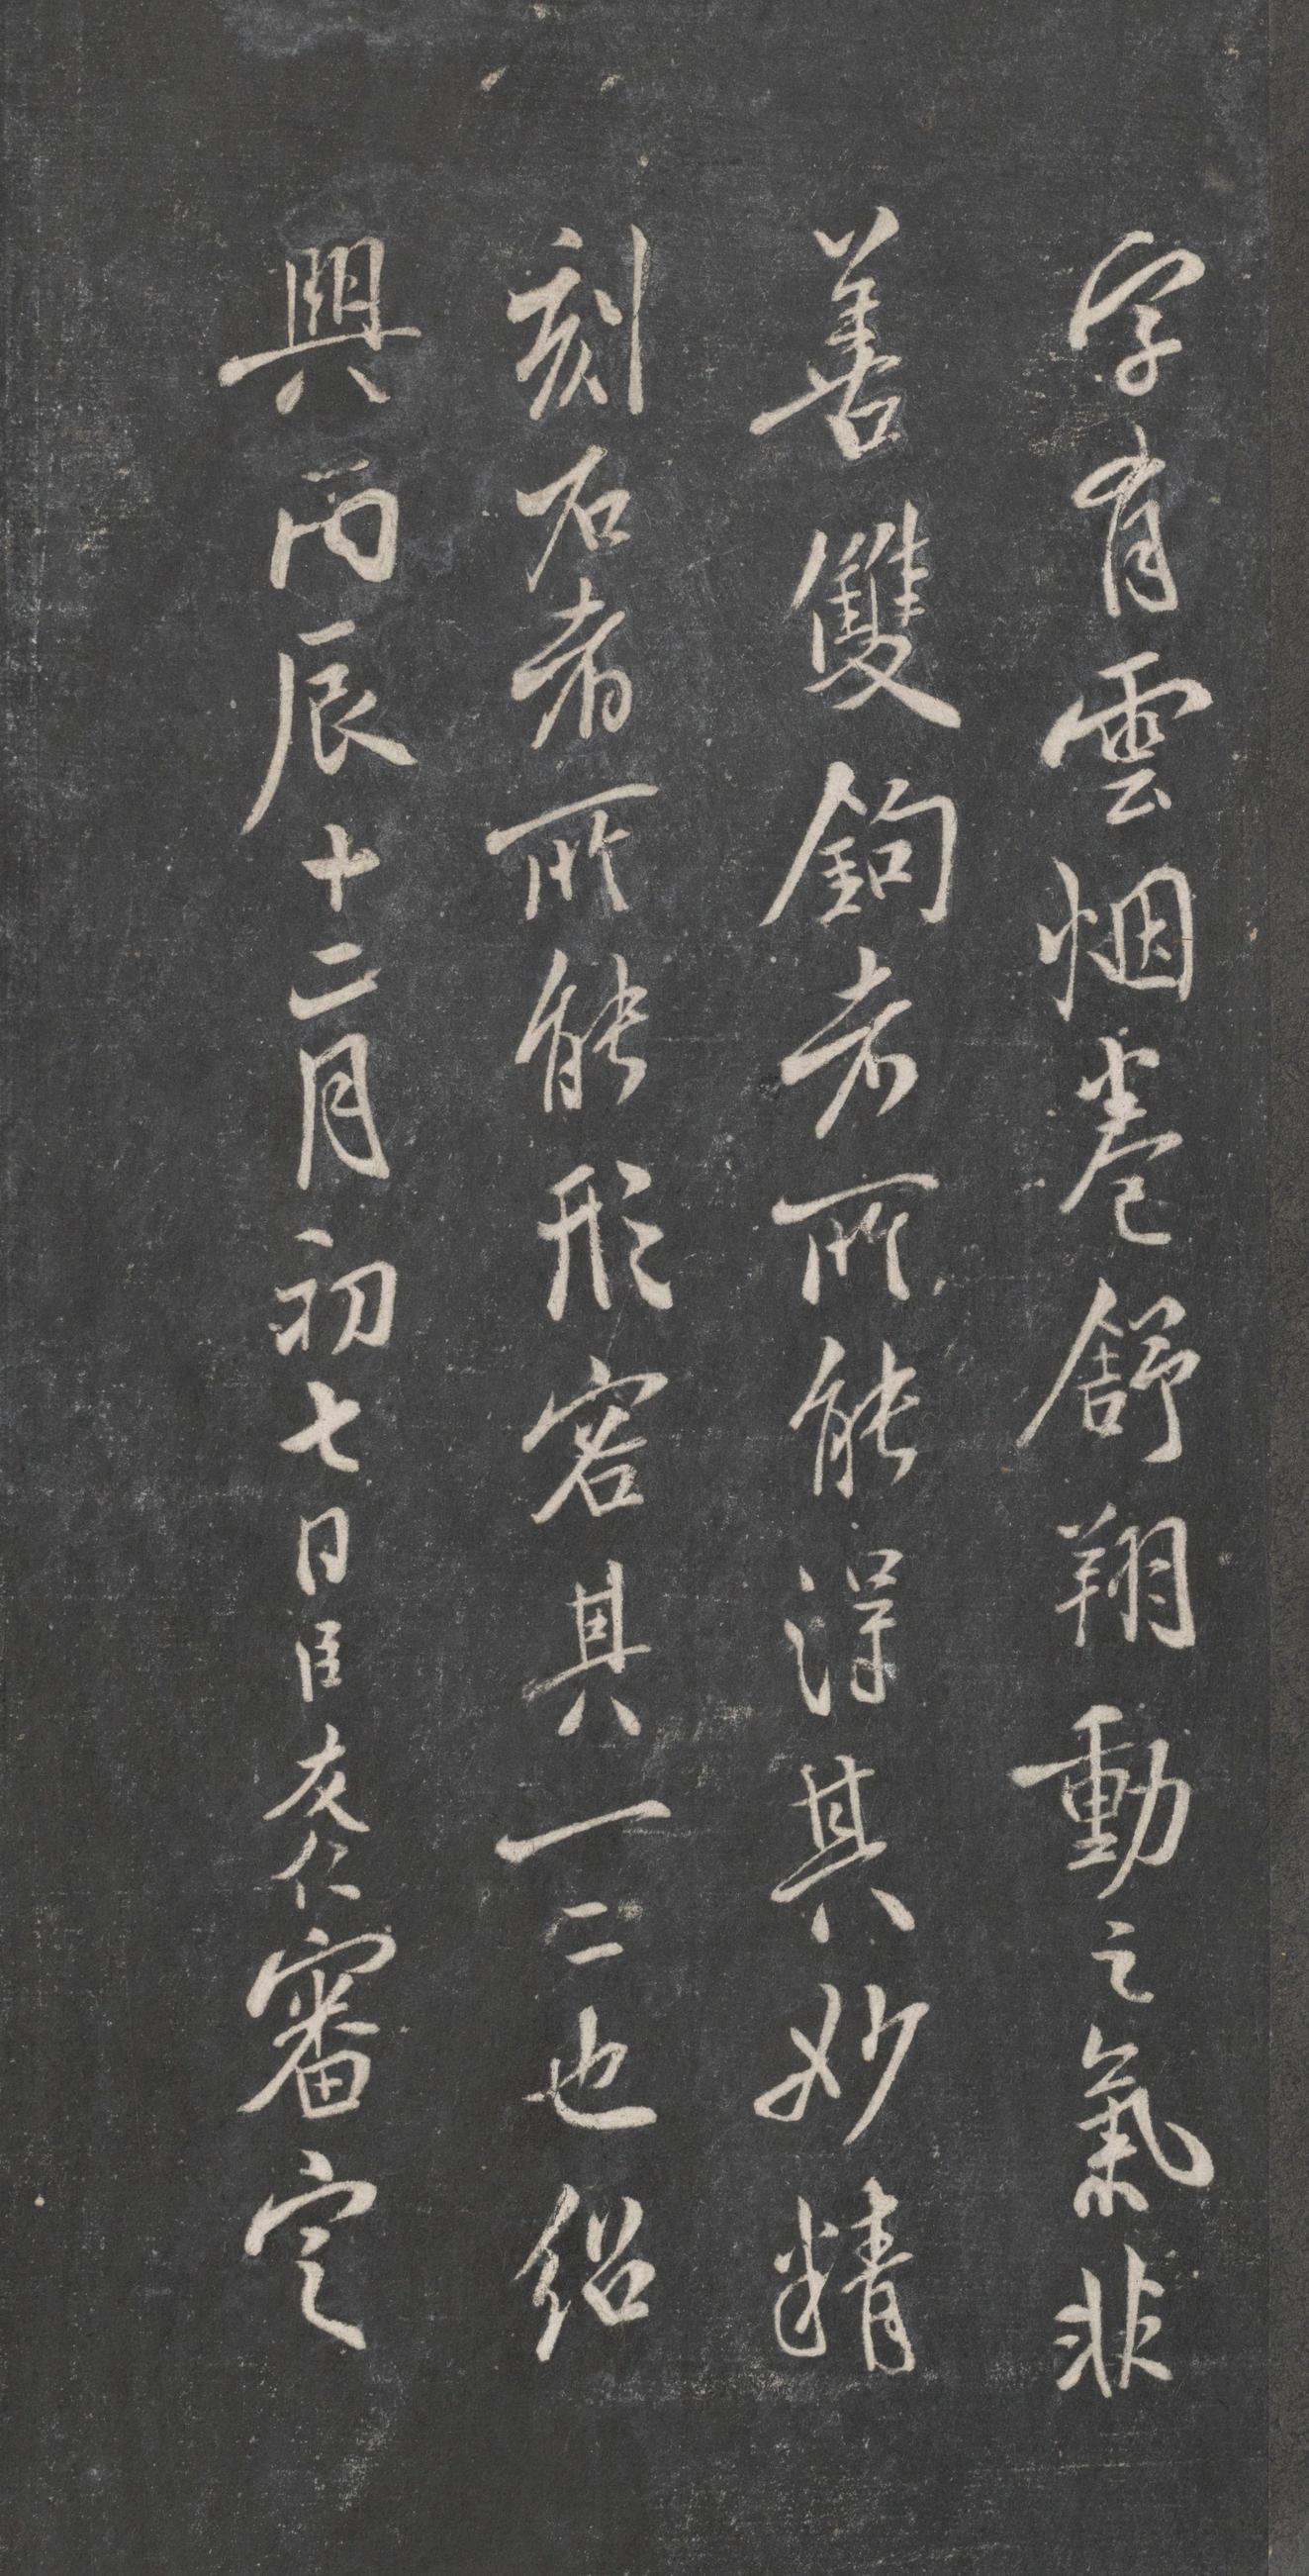 字有雲烟卷舒翔動之氣非
善雙鉤者所能得其妙精
刻石者所能形容其一二也紹
興丙辰十二月初七日臣友仁審定